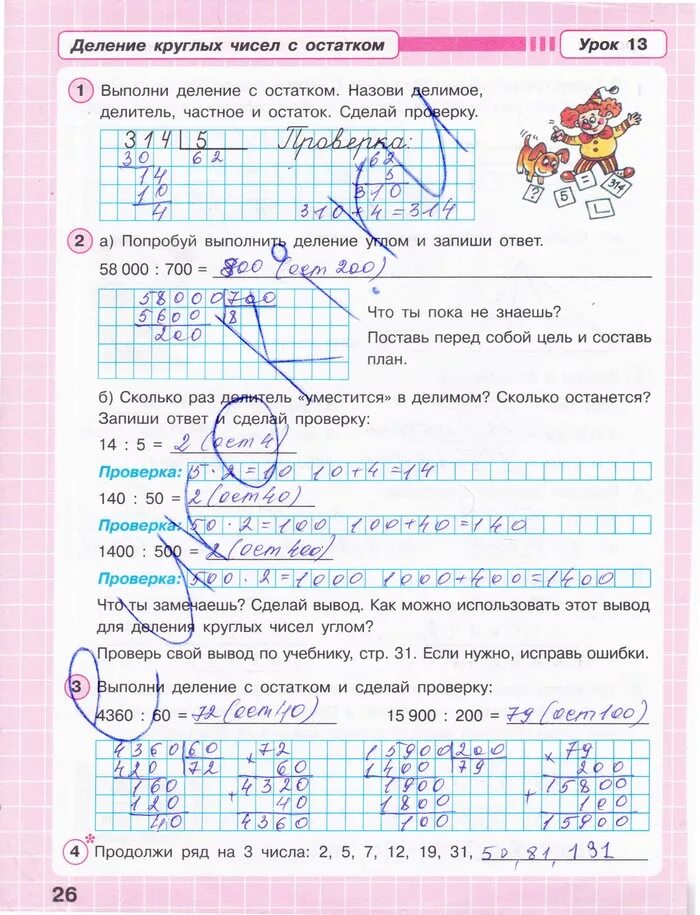 Деление круглых чисел с остатком
Урок 13
1 Выполни деление с остатком. Назови делимое,
делитель, частное и остаток. Сделай проверку.
314 5 Проверка:
30 62 62
14 5
10 310
4 310+4=314
? 5 = 314
2 а) Попробуй выполнить деление углом и запиши ответ.
58 000 : 700 = 800 (ост 200)
58000 700
5600 8
200
Что ты пока не знаешь?
Поставь перед собой цель и составь
план.
б) Сколько раз делитель «уместится» в делимом? Сколько останется?
Запиши ответ и сделай проверку:
14 : 5 = 2 (ост 4)
Проверка: 5 · 2 = 10 10 + 4 = 14
140 : 50 = 2 (ост 40)
Проверка: 50 · 2 = 100 100 + 40 = 140
1400 : 500 = 2 (ост 400)
Проверка: 500 · 2 = 1000 1000 + 400 = 1400
Что ты замечаешь? Сделай вывод. Как можно использовать этот вывод
для деления круглых чисел углом?
Проверь свой вывод по учебнику, стр. 31. Если нужно, исправь ошибки.
3 Выполни деление с остатком и сделай проверку:
4360 : 60 = 72 (ост 40) 15 900 : 200 = 79 (ост 100)
4360 60 ×72 15900 200 ×79
420 72 60 1400 79 200
160 +4320 1900 +15800
120 40 1800 100
40 4360 100 15900
4* Продолжи ряд на 3 числа: 2, 5, 7, 12, 19, 31, 50, 81, 131
26